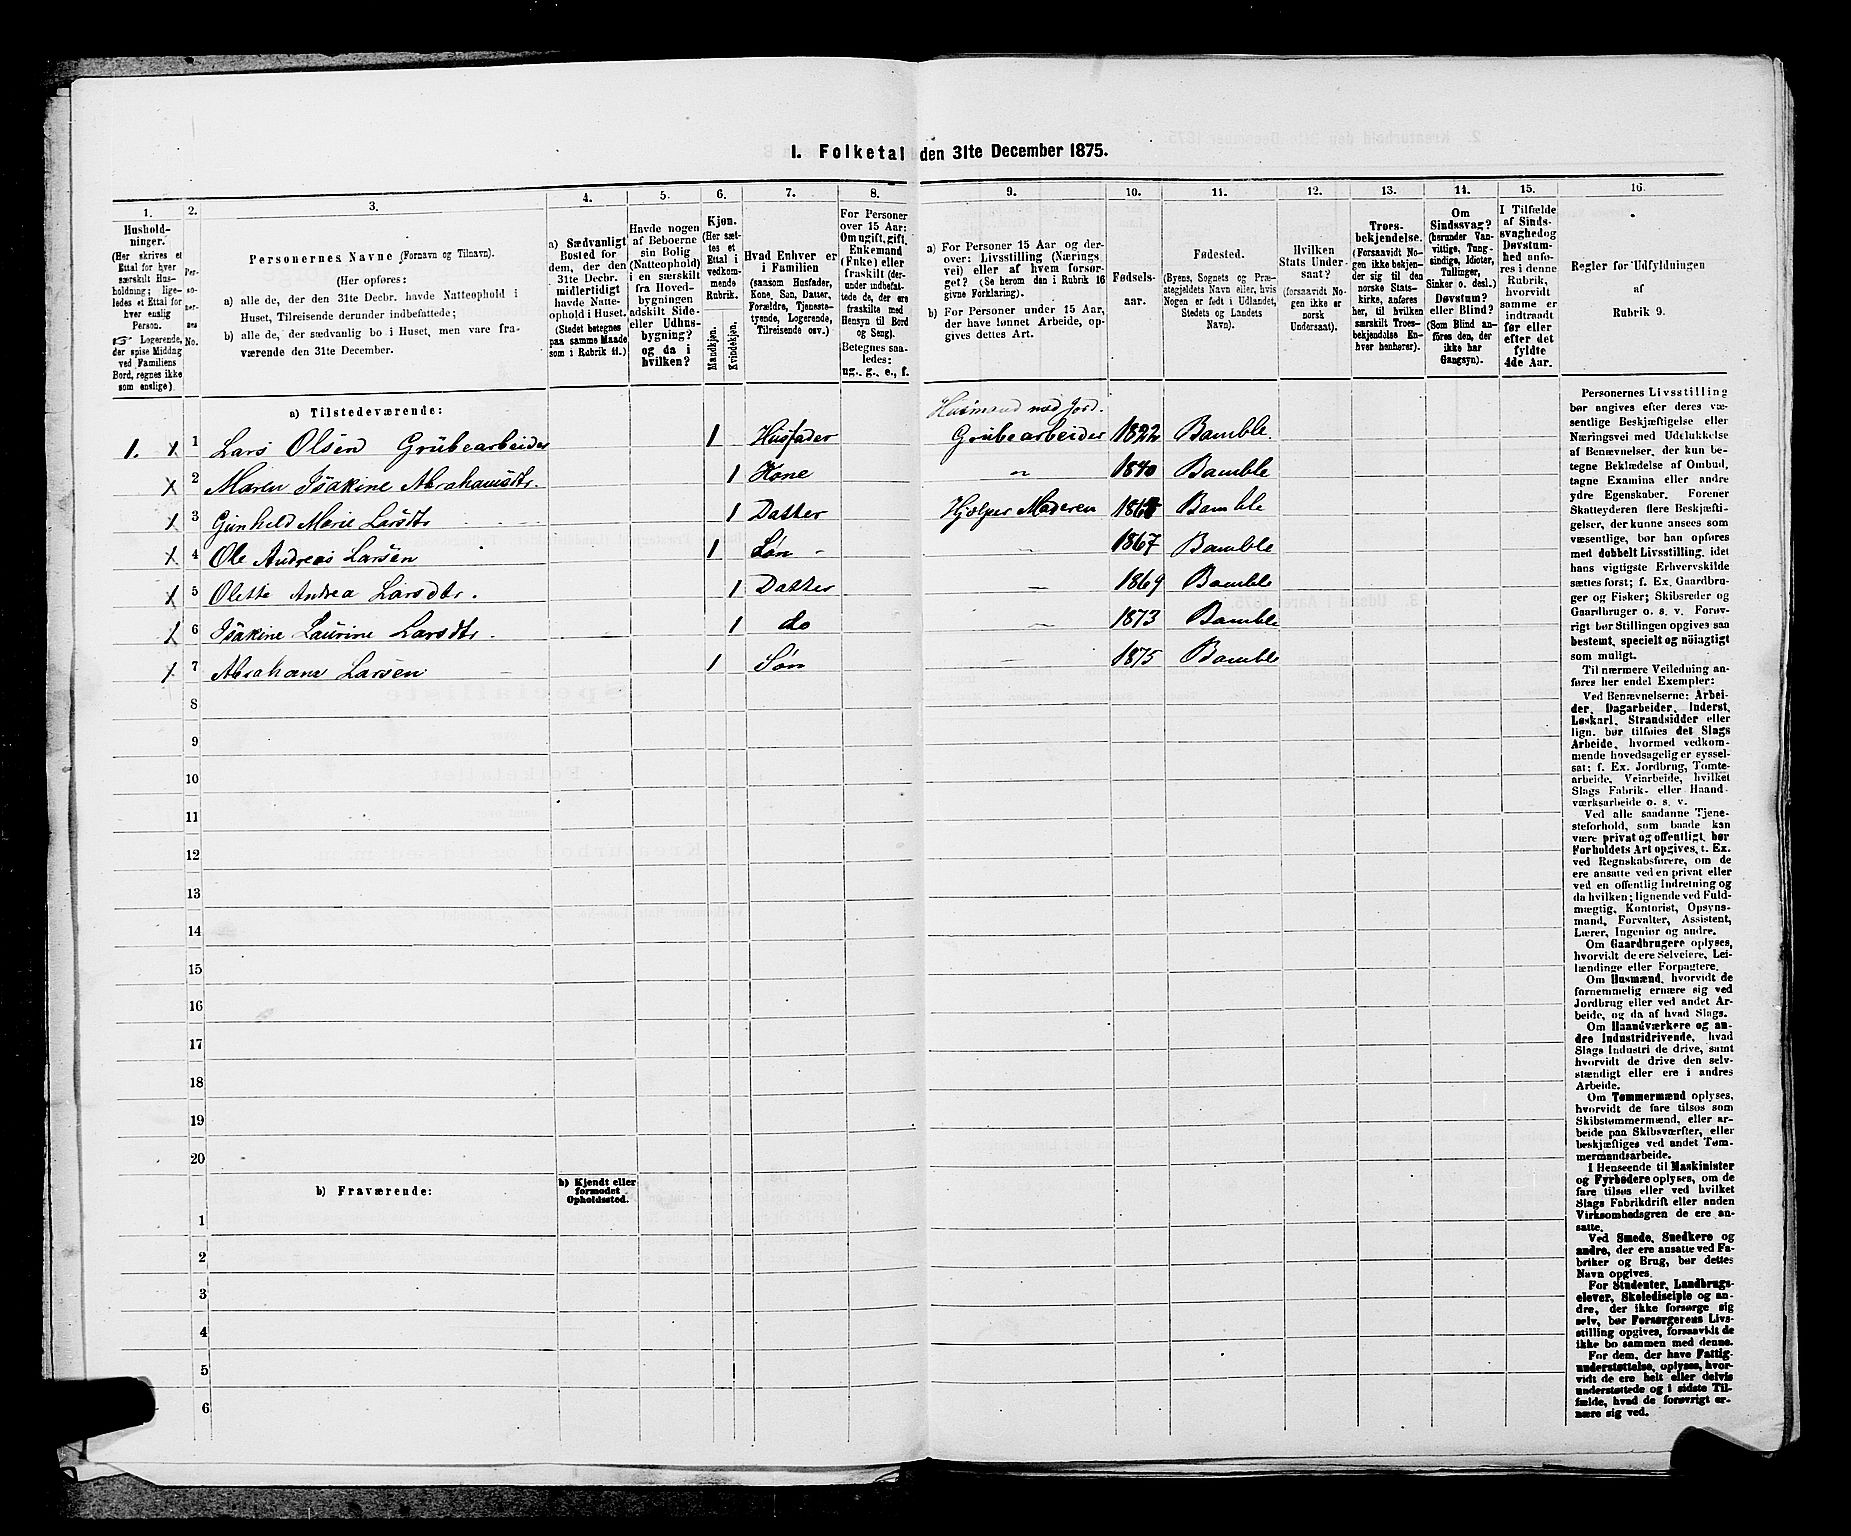 1. Folketal den 31te December 1875.
1.
2.
3.
4.
5.
6.
7.
8.
9.
10.
11.
12.
13.
14.
15.
16.
Hushold-
ninger.
(Her skrives et
Ettal for hver
særskilt Hus-
holdning; lige-
ledes et Ettal for
hver enslig
Person.
☞ Logerende,
der spise Middag
ved Familiens
Bord, regnes ikke
som enslige).
Per-
so-
ner-
nes
No.
Personernes Navne (Fornavn og Tilnavn).
(Her opføres:
a) alle de, der den 31te Decbr. havde Natteophold i
Huset, Tilreisende derunder indbefattede;
b) alle de, der sædvanlig bo i Huset, men vare fra-
værende den 31te December.
a) Sædvanligt
Bosted for
dem, der den
31te Decbr.
midlertidigt
havde Natte-
ophold i Huset.
(Stedet betegnes
paa samme Maade
som i Rubrik 11.)
Havde nogen
af Beboerne
sin Bolig
(Natteophold)
i en særskilt
fra Hoved-
bygningen
adskilt Side-
eller Udhus-
bygning?
og da i
hvilken?
Kjøn.
(Her sæt-
tes et
Ettal i
vedkom-
mende
Rubrik.
Mandkjøn.
Kvindekjøn.
Hvad Enhver er
i Familien
(saasom Husfader,
Kone, Søn, Datter,
Forældre, Tjeneste-
tyende, Logerende,
Tilreisende osv.)
For Personer
over 15 Aar:
Om ugift, gift,
Enkemand
(Enke) eller
fraskilt (der-
under indbefat-
tede de, der ere
fraskilte med
Hensyn til Bord
og Seng).
Betegnes saa-
ledes:
ug., g., e., f.
a) For Personer 15 Aar og der-
over: Livsstilling (Nærings
vei) eller af hvem forsør-
get? (Se herom den i Rubrik 16
givne Forklaring).
b) For Personer under 15 Aar,
der have lønnet Arbeide, op-
gives dettes Art.
Fødsels-
aar.
Fødested.
(Byens, Sognets og Præ-
stegjeldets Navn eller, hvis
Nogen er født i Udlandet,
Stedets og Landets
Navn).
Hvilken
Stats Under-
saat?
(forsaavidt No-
gen ikke er
norsk
Undersaat).
Troes-
bekjendelse.
(Forsaavidt No-
gen ikke bekjen-
der sig til den
norske Stats-
kirke, anføres
her, til hvilken
særskilt Troes-
bekjendelse En-
hver henhører).
Om
Sindssvag?
(herunder Van-
vittige, Tung-
sindige, Idioter,
Tullinger,
Sinker o. desl.)
Døvstum?
eller Blind?
(Som Blind an-
føres den, der
ikke har
Gangsyn).
I Tilfælde
af Sinds-
svaghed og
Døvstum-
hed anfø-
res i denne
Rubrik,
hvorvidt
samme er
indtraadt
før eller
efter det
fyldte
4de Aar.
Regler for Udfyldningen
af
Rubrik 9.
a) Tilstedeværende:
Husmand med Jord.
1. x 1 Lars Olsen Grubearbeider 1 Husfader Grubearbeider 1822 Bamble.
x 2 Maren Isakine Abrahamsdtr. 1 Kone " 1840 Bamble
x 3 Gunhild Marie Larsdtr 1 Datter Hjelper Moderen Bamble
x 4 Ole Andreas Larsen 1 Søn - — 1867 Bamble
x 5 Olette Andrea Larsdtr. 1 Datter — 1869 Bamble
x 6 Isakine Laurine Larsdtr. 1 do — 1873 Bamble
x 7 Abraham Larsen 1 Søn — 1875 Bamble
8
9
10
11
12
13
14
15
16
17
18
19
20
b) Fraværende:
b) Kjendt eller
formodet
Opholdssted.
1
2
3
4
5
6
Personernes Livsstilling
bør angives efter deres væ-
sentlige Beskjæftigelse eller
Næringsvei med Udelukkelse
af Benævnelser, der kun be-
tegne Beklædelse af Ombud,
tagne Examina eller andre
ydre Egenskaber. Forener
Skatteyderen flere Beskjæfti-
gelser, der kunne ansees som
væsentlige, bør han opføres
med dobbelt Livsstilling, idet
hans vigtigste Erhvervskilde
sættes først; f. Ex. Gaardbru-
ger og Fisker; Skibsreder og
Gaardbruger o. s. v. Forøv-
rigt bør Stillingen opgives saa
bestemt, specielt og nøiagtigt
som muligt.
Til nærmere Veiledning an-
føres her endel Exempler:
Ved Benævnelserne: Arbei-
der, Dagarbeider, Inderst,
Løskarl, Strandsidder eller
lign. bør tilføies det Slags
Arbeide, hvormed vedkom-
mende hovedsagelig er syssel-
sat; f. Ex. Jordbrug, Tomte-
arbeide, Veiarbeide, hvilket
Slags Fabrik- eller Haand-
værksarbeide o. s. v.
Ved alle saadanne Tjene-
steforhold, som baade kan
være privat og offentligt, bør
Forholdets Art opgives, t. Ex.
ved Regnskabsførere, om de
ere ansatte ved en privat eller
ved en offentlig Indretning og
da hvilken; lignende ved Fuld-
mægtig, Kontorist, Opsyns-
mand, Forvalter, Assistent,
Lærer, Ingeniør og andre.
Om Gaardbrugere oplyses,
hvorvidt de ere Selveiere, Lei-
lændinge eller Forpagtere.
Om Husmænd, hvorvidt de
fornemmelig ernære sig ved
Jordbrug eller ved andet Ar-
beide, og da af hvad Slags.
Om Haandværkere og an-
dre Industridrivende, hvad
Slags Industri de drive, samt
hvorvidt de drive den selv-
stændigt eller ere i andres
Arbeide.
Om Tømmermænd oplyses,
hvorvidt de fare tilsøs som
Skibstømmermænd, eller ar-
beide paa Skibsværfter, eller
beskjæftiges ved andet Tøm-
mermandsarbeide.
I Henseende til Maskinister
og Fyrbødere oplyses, om de
fare tilsøs eller ved hvilket
Slags Fabrikdrift eller anden
Virksomhedsgren de ere an-
satte.
Ved Smede, Snedkere og
andre, der ere ansatte ved Fa-
briker og Brug, bør dettes
Navn opgives.
For Studenter, Landbrugs-
elever, Skoledisciple og an-
dre, der ikke forsørge sig
selv, bør Forsørgerens Livs-
stilling opgives, forsaavidt de
ikke bo sammen med denne.
For dem, der have Fattig-
understøttelse, oplyses, hvor-
vidt de ere helt eller delvis
understøttede og i sidste Til-
fælde, hvad de forøvrigt er-
nære sig ved.